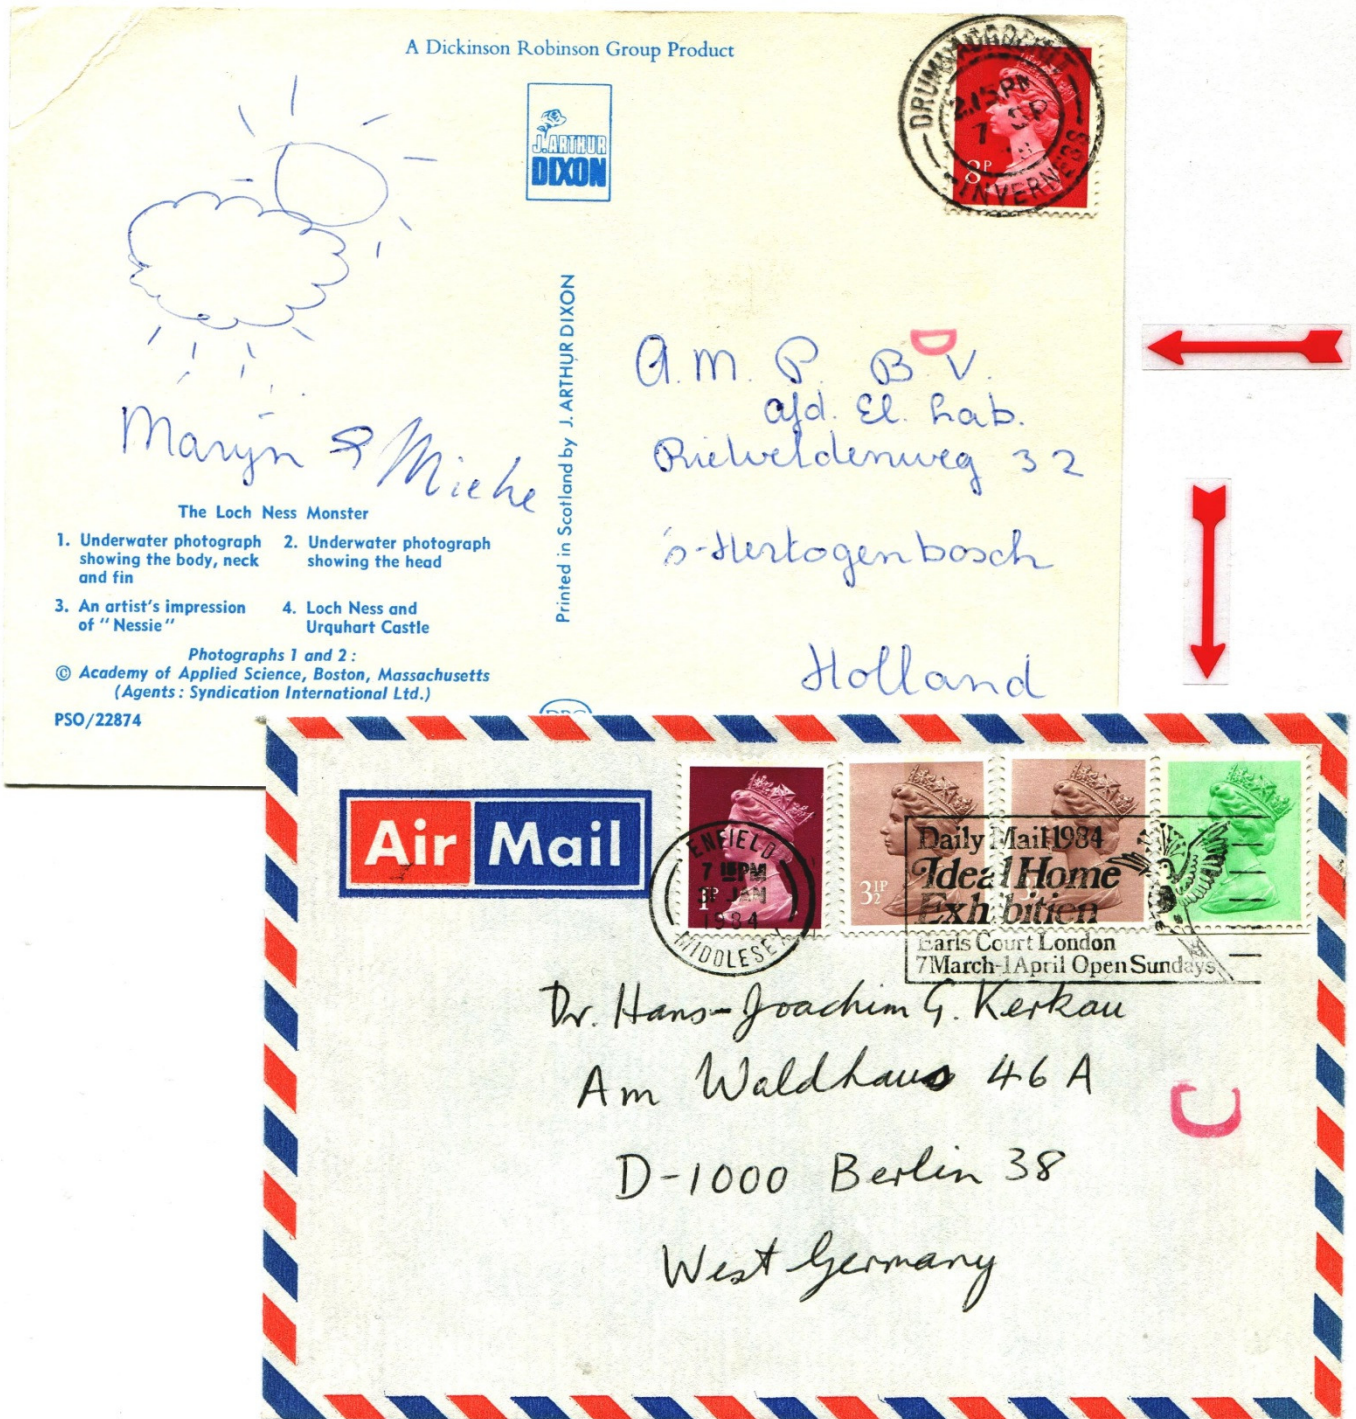 A Dickinson Robinson Group Product
J. ARTHUR
DIXON
DRUMNADROCHIT
2.15PM
7 SP
INVERNESS
8P
Printed in Scotland by J. ARTHUR DIXON
D
A. M. P. B V.
afd. El. Lab.
Rietveldenweg 32
's-Hertogenbosch
Holland
Maryn & Mieke
The Loch Ness Monster
1. Underwater photograph
showing the body, neck
and fin
2. Underwater photograph
showing the head
3. An artist's impression
of "Nessie"
4. Loch Ness and
Urquhart Castle
Photographs 1 and 2 :
© Academy of Applied Science, Boston, Massachusetts
(Agents : Syndication International Ltd.)
PSO/22874
DRG
Air Mail
ENFIELD
PM
JAN
1984
MIDDLESEX
1P
3½P
Daily Mail 1984
Ideal Home
Exhibition
Earls Court London
7 March-1 April Open Sundays
Dr. Hans-Joachim G. Kerkau
Am Waldhaus 46 A
D-1000 Berlin 38
West Germany
C